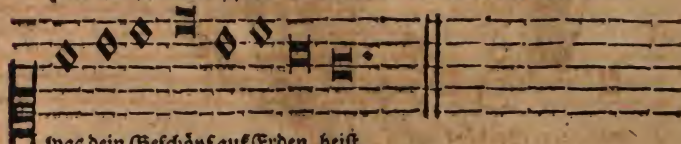 was dein Geschöpf auf Erden heist